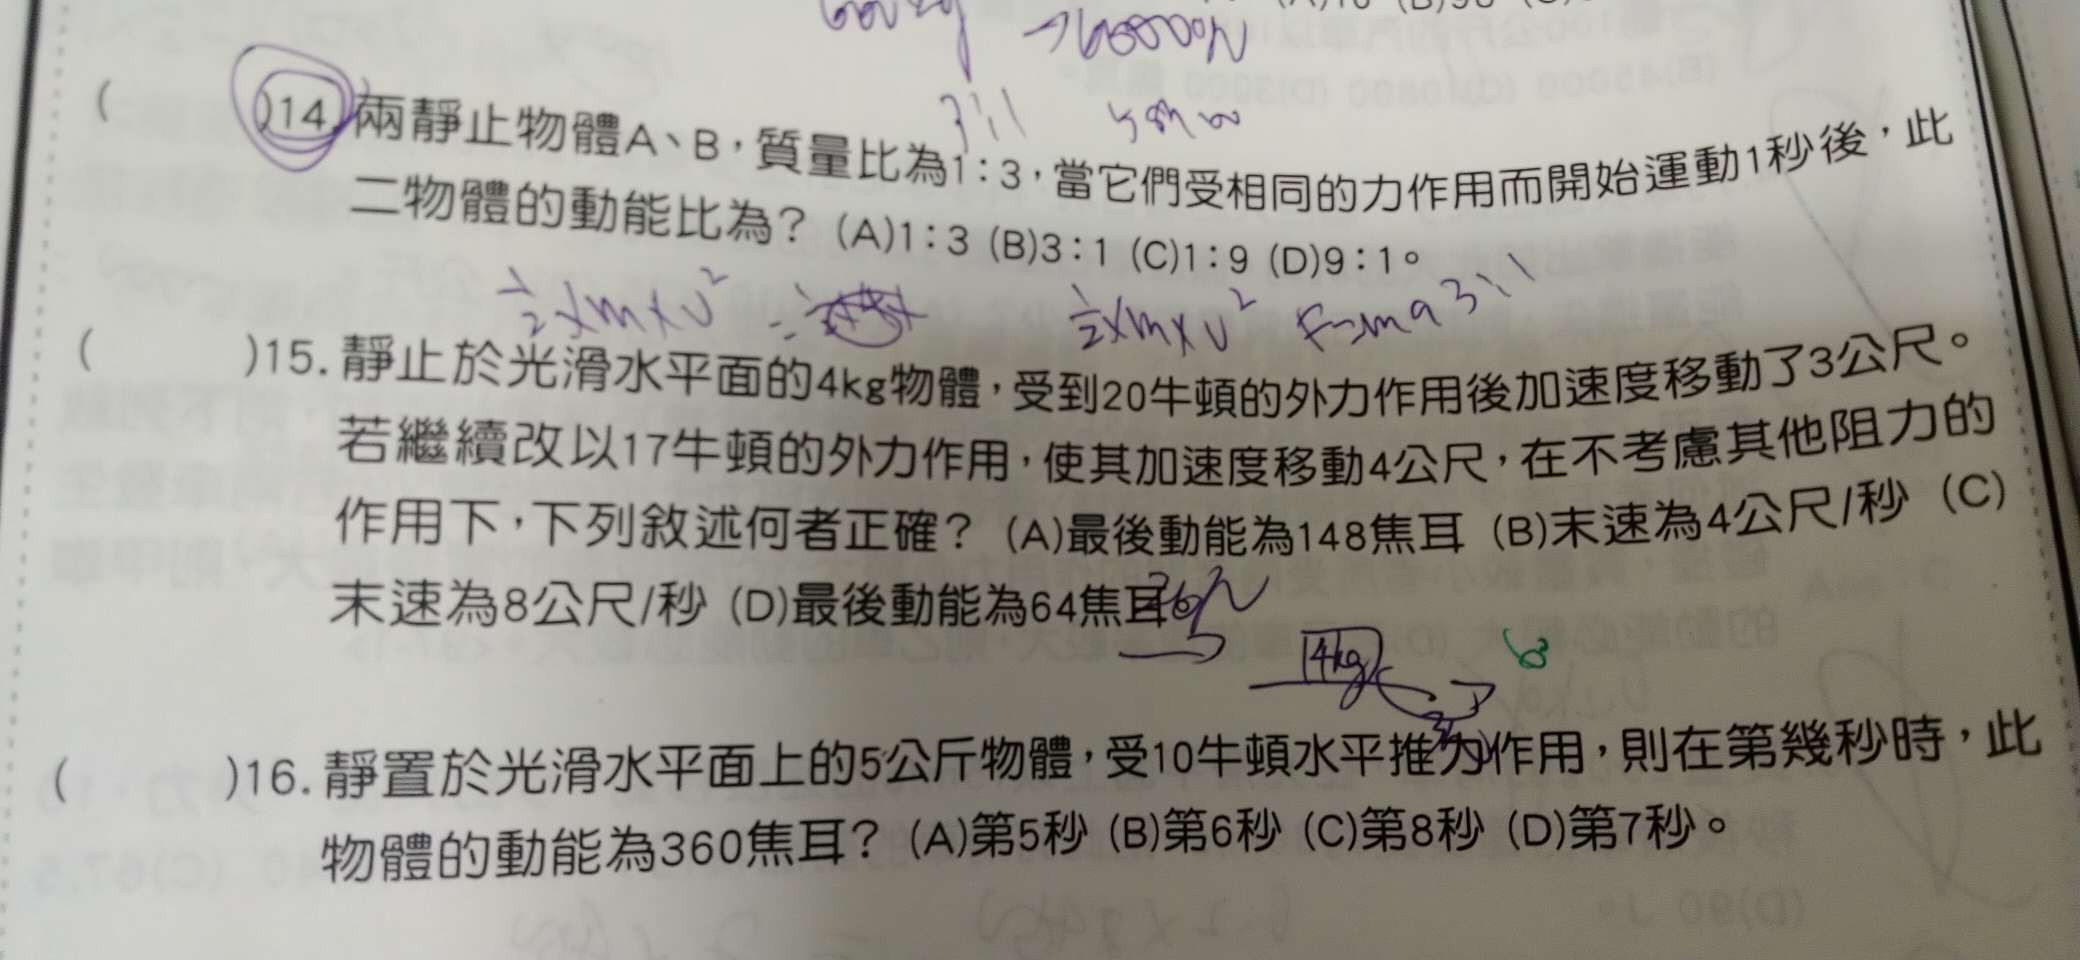 (        )14.兩靜止物體A、B，質量比為1：3，當它們受相同的力作用而開始運動1秒後，此
二物體的動能比為？ (A)1：3 (B)3：1 (C)1：9 (D)9：1。
3:1
½×m×v² =
½×m×v² F=ma 3:1
(        )15.靜止於光滑水平面的4kg物體，受到20牛頓的外力作用後加速度移動了3公尺。
若繼續改以17牛頓的外力作用，使其加速度移動4公尺，在不考慮其他阻力的
作用下，下列敘述何者正確？ (A)最後動能為148焦耳 (B)末速為4公尺/秒 (C)
末速為8公尺/秒 (D)最後動能為64焦耳
4kg
(        )16.靜置於光滑水平面上的5公斤物體，受10牛頓水平推力作用，則在第幾秒時，此
物體的動能為360焦耳？ (A)第5秒 (B)第6秒 (C)第8秒 (D)第7秒。